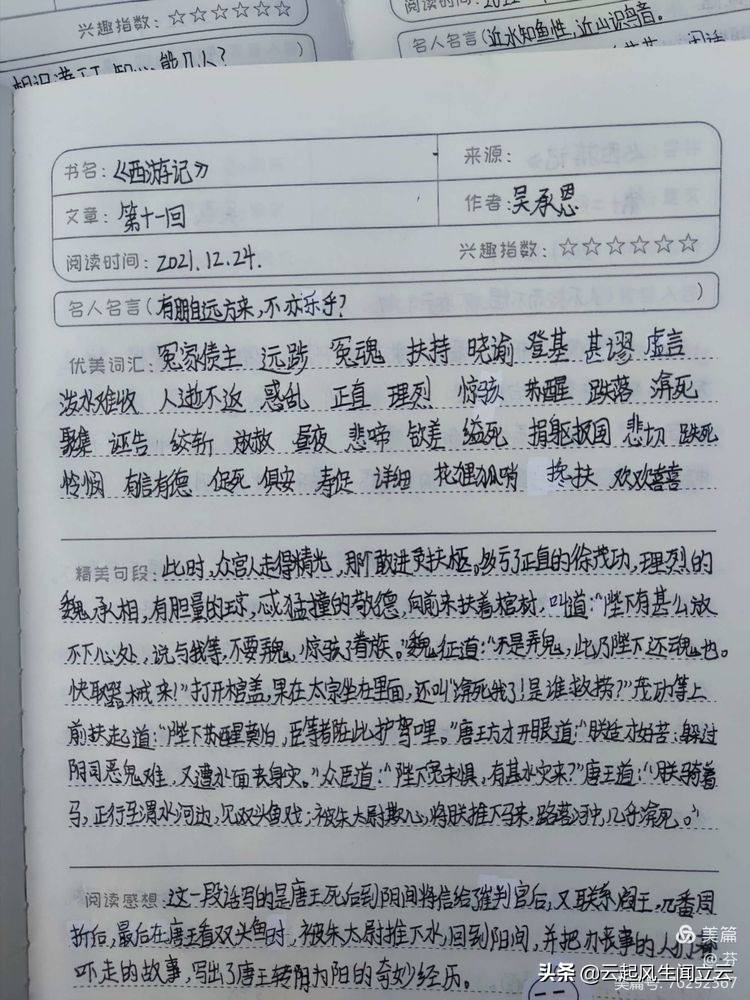 兴趣指数：☆☆☆☆☆☆
阅读时间：2021
名人名言（近水知鱼性，近山识鸟音。
书名：《西游记》
来源：
文章：第十一回
作者：吴承恩
阅读时间：2021.12.24.
兴趣指数：☆☆☆☆☆☆
名人名言（有朋自远方来，不亦乐乎？）
优美词汇：冤家债主 远涉 冤魂 扶持 晓谕 登基 甚谬 虚言
泼水难收 人逝不返 惑乱 正直 理烈 惊骇 苏醒 跌落 渰死
聚集 诬告 绞斩 放赦 昼夜 悲啼 钦差 缢死 捐躯报国 悲切 跌死
怜悯 有信有德 促死 俱安 寿促 详细 花狸狐哨 搀扶 欢欢喜喜
精美句段：此时，众宫人走得精光，那个敢进灵扶柩。多亏了正直的徐茂功，理烈的
魏承相，有胆量的琼，忒猛撞的敬德，向前来扶着棺材，叫道：“陛下有甚么放
不下心处，说与我等，不要弄鬼，惊骇了眷族。”魏征道：“不是弄鬼，此乃陛下还魂也。
快取器械来！”打开棺盖，果在太宗坐在里面，还叫“渰死我了！是谁救捞？”茂功等上
前扶起道：“陛下苏醒莫怕，臣等都在此护驾哩。”唐王方才开眼道：“朕适才好苦：躲过
阴司恶鬼难，又遭水面丧身灾。”众臣道：“陛下宽未惧，有甚水灾来？”唐王道：“朕骑着
马，正行至渭水河边，见双头鱼戏；被朱太尉欺心，将朕推下马来，跌落河中，几乎渰死。”
阅读感想：这一段话写的是唐王死后到阴间将信给了崔判官后，又联系阎王，几番周
折后，最后在唐王看双头鱼时，被朱太尉推下水，回到阳间，并把办丧事的人们都
吓走的故事，写出了唐王转阴为阳的奇妙经历。
美篇
@芬
头条 @云起风生闻立云
美篇号:76252367